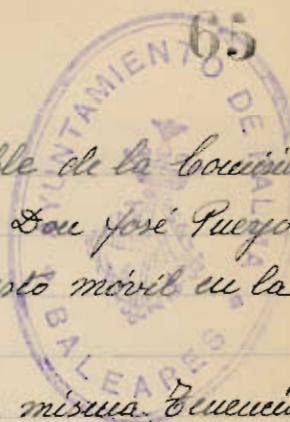 65
AYUNTAMIENTO DE PALMA
BALEARES
ble de la Comisi
Don José Pueyo
sto móvil en la
misma Tenenci